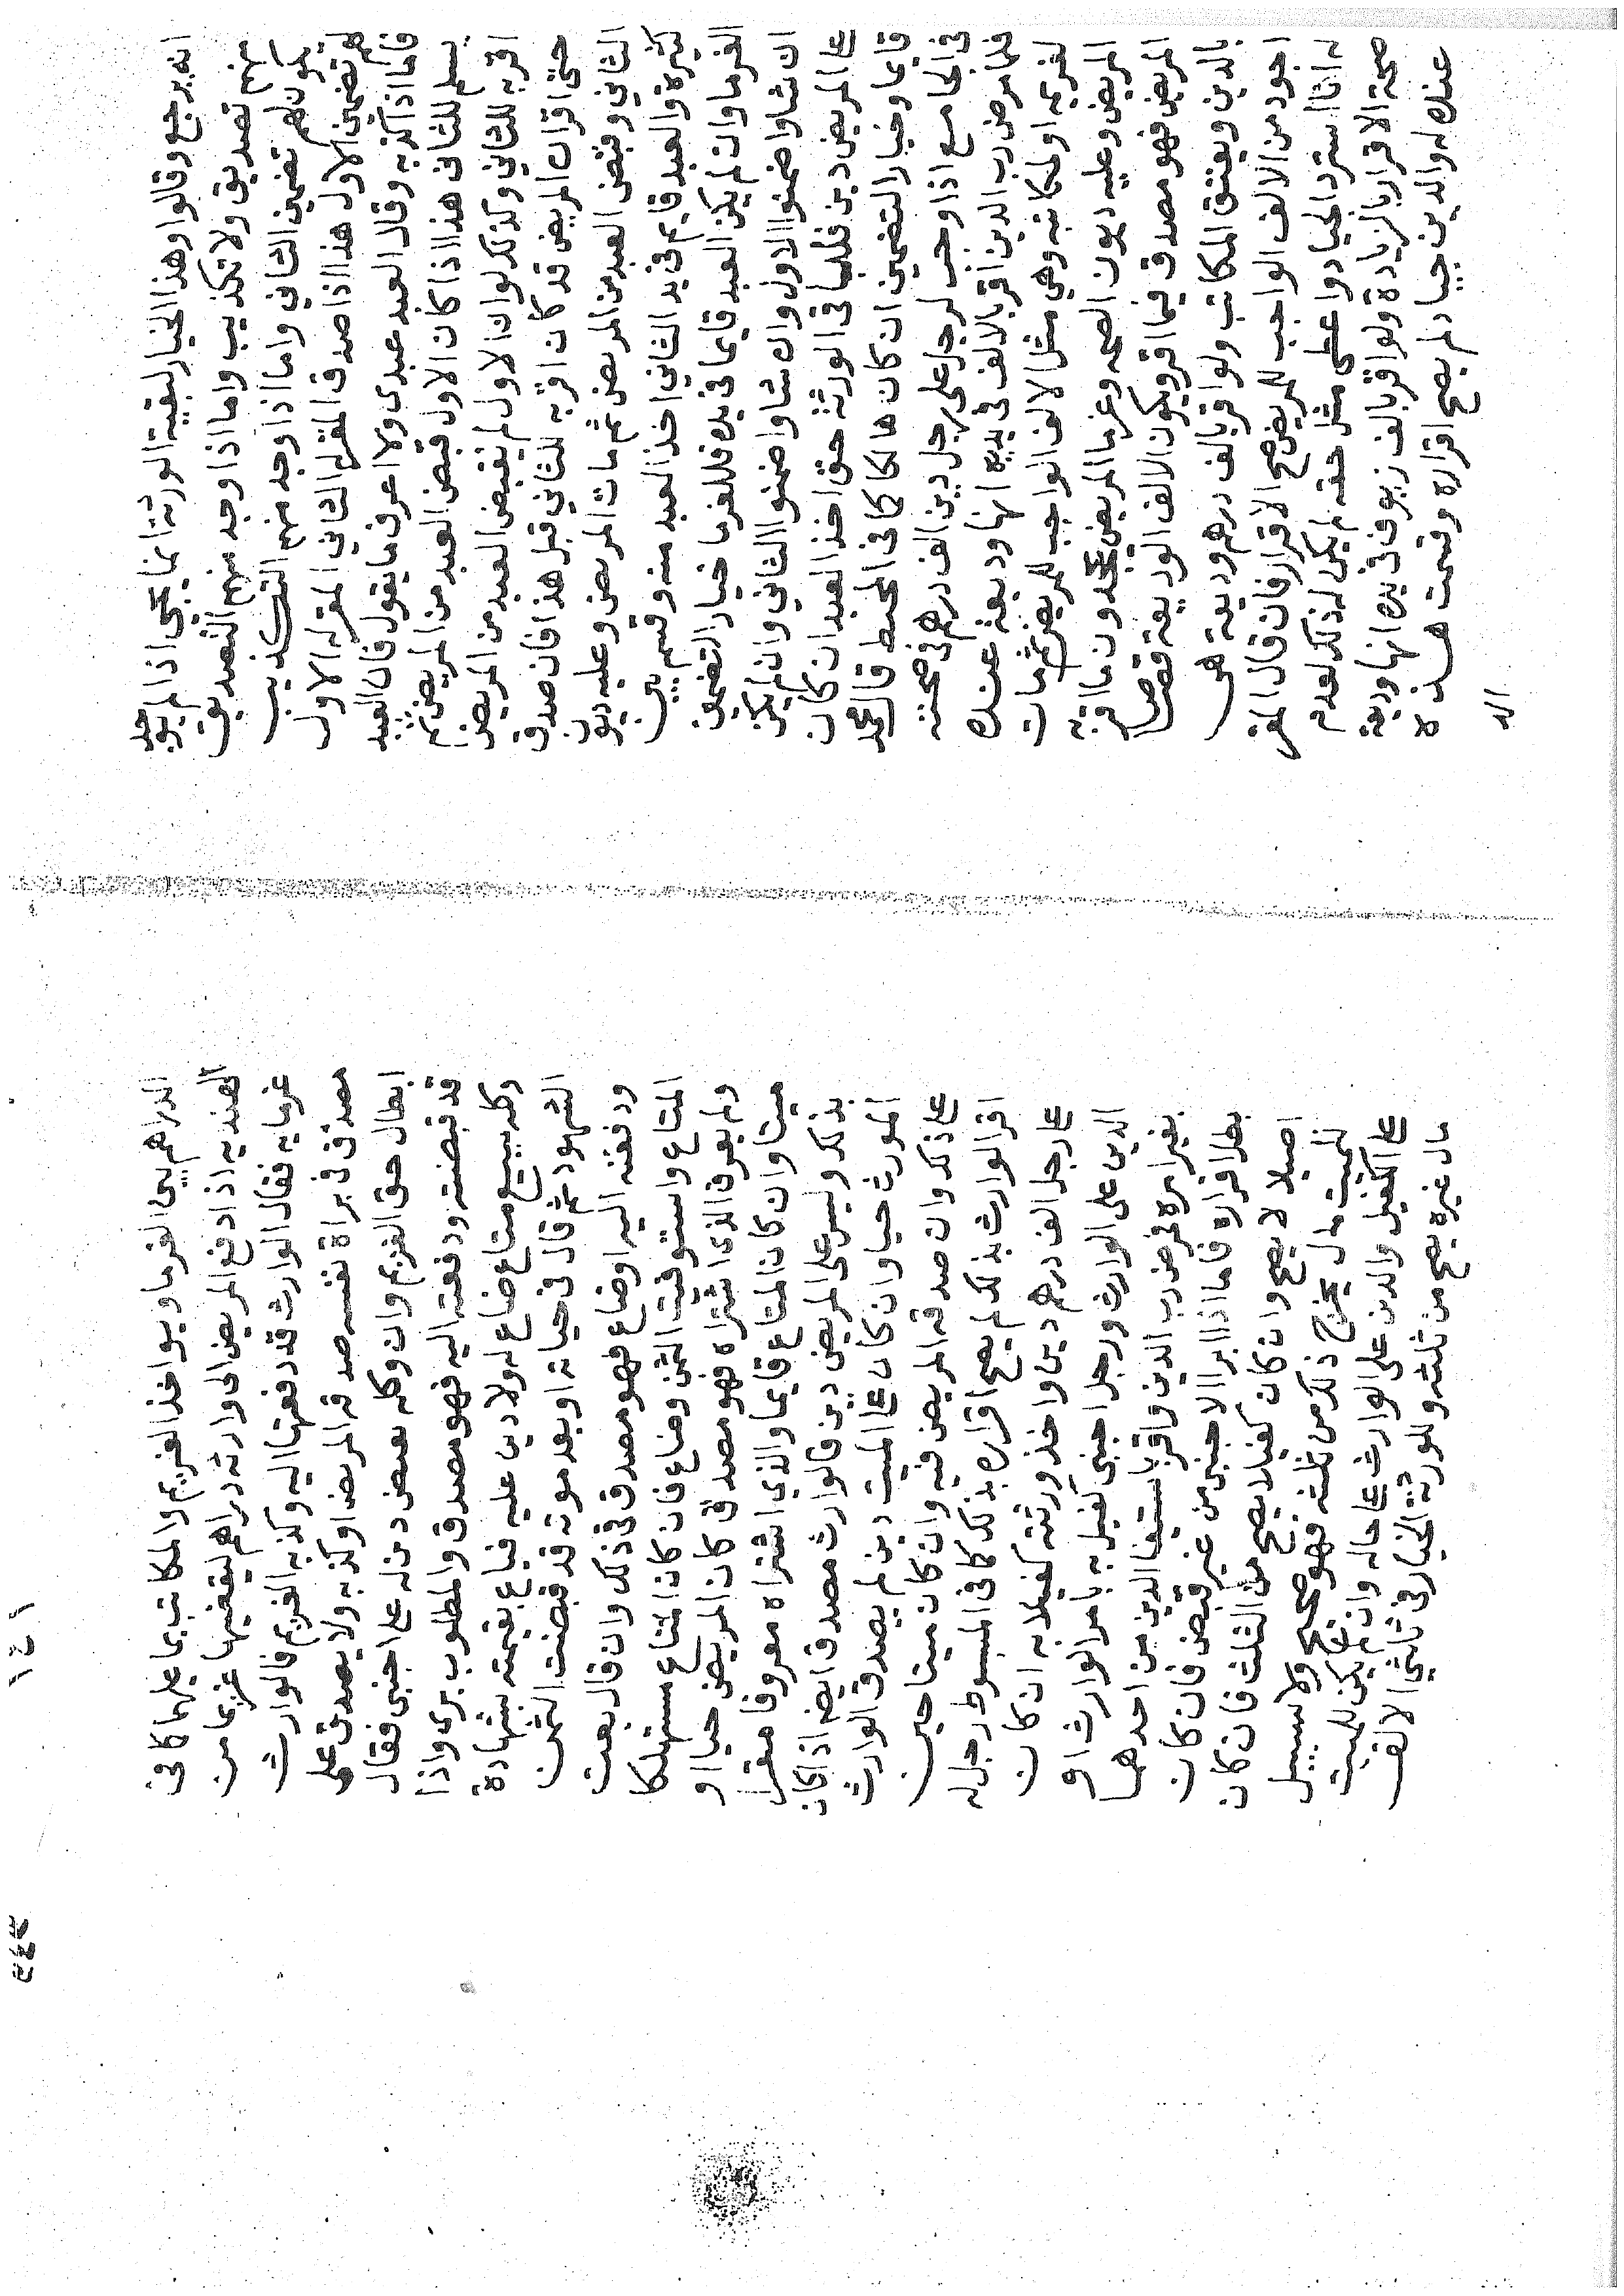 انه يرجع وقالوا وهذا الخيار لبقية الورثة انما يجي اذا لم يوجد
منهم تصديق ولا تكذيب واما اذا وجد منهم التصديق
يكون لهم تضمين الثاني واما اذا وجد منهم التكذيب
لهم تضمين الاول هذا اذا صدق المقر له الثاني المقر له الاول
فاما اذا كذبه وقال العبد عبدي ولا اعرف ما يقول فان العبد
يسلم للثاني هذا اذا كان الاول قبض العبد من المريض ثم
اقر به للثاني وكذلك لو ان الاول لم يقبض العبد من المريض
حتى اقر ان المريض قد كان اقر به للثاني قبل هذا فان صدق
الثاني وقبض العبد من المريض ثم مات المريض وعليه ديون
كثيرة والعبد قايم في يد الثاني اخذ العبد منه وقسم بين
الغرما وان لم يكن العبد قايما في يده فللغرما خيار التضمين
ان شاوا ضمنوا الاول وان شاوا ضمنوا الثاني وان لم يكن
على المريض دين فلباقي الورثة حق اخذ العبد ان كان
قايما وخيار التضمين ان كان هالكا كذا في المحيط قال محمد
في الجامع اذا وجب لرجل على رجل دين الف درهم في صحته
فلما مرض رب الدين اقر بالالف في يديه انها وديعة عنده
لغريمه او لمكاتبه وهي مثل الالف الواجب للمريض ثم مات
المريض وعليه ديون الصحة وغرما المريض يجحدون ما اقر به
المريض فهو مصدق فيما اقر ويكون الالف الوديعة قصاصا
بالدين ويعتق المكاتب ولو اقر بالف درهم وديعة هي
اجود من الالف الواجب للمريض صح الاقرار فان قال المقر
له انا استرد الجياد واعطى مثل حقه لم يكن له ذلك لعدم
صحة الاقرار بالزيادة ولو اقر بالف زيوف في يده انها وديعة
عنده له والدين جياد لم يصح اقراره وقسمت هذه
الد
الدراهم بين الغرما ويواخذ الغريم والمكاتب بما عليهما كذا في
الهنديه اذا دفع المريض الى وارثه دراهم ليقضيها غريما من
غرمايه فقال الوارث قد دفعتها اليه وكذبه الغريم فالوارث
مصدق في براة نفسه صدقه المريض او كذبه ولا يصدق على
ابطال حق الغريم وان وكله بقبض دين له على اجنبي فقال
قد قبضته ودفعته اليه فهو مصدق والمطلوب بري واذا
وكله ببيع متاع ضاع له ولا دين عليه فباع بقيمته بشهادة
الشهود ثم قال في حياته او بعد موته قد قبضت الثمن
ودفعته اليه او ضاع فهو مصدق في ذلك وان قال بعت
المتاع واستوفيت الثمن وضاع فان كان المتاع مستهلكا
ولم يعرف الذي اشتراه فهو مصدق كان المريض حيا او
ميتا وان كان المتاع قايما والذي اشتراه معروفا مقرا
بذلك وليس على المريض دين فالوارث مصدق ايضا اذا كان
المورث حيا وان كان على الميت دين لم يصدق الوارث
على ذلك وان صدقه المريض فيه وان كان ميتا حين
اقر الوارث بذلك لم يصح اقراره بذلك كذا في المبسوط رجل له
على رجل الف درهم دين واخذ ورثته كفيلا به ان كان
الدين على الوارث ورجل اجنبي كفيل به بامر الوارث او
بغير امره فمرض رب الدين واقر باستيفا الدين من احدهما
بطل اقراره فاما اذا ابرا الاجنبي من غير قبض فان كان
اصيلا لا يصح وان كان كفيلا يصح من الثلث فان كان
للميت مال يخرج ذلك من ثلثه فهو صحيح ولا سبيل
على الكفيل والدين على الوارث على حاله وان لم يكن للميت
مال غيره يصح من ثلثه وللورثة الخيار في ثلثي الالف